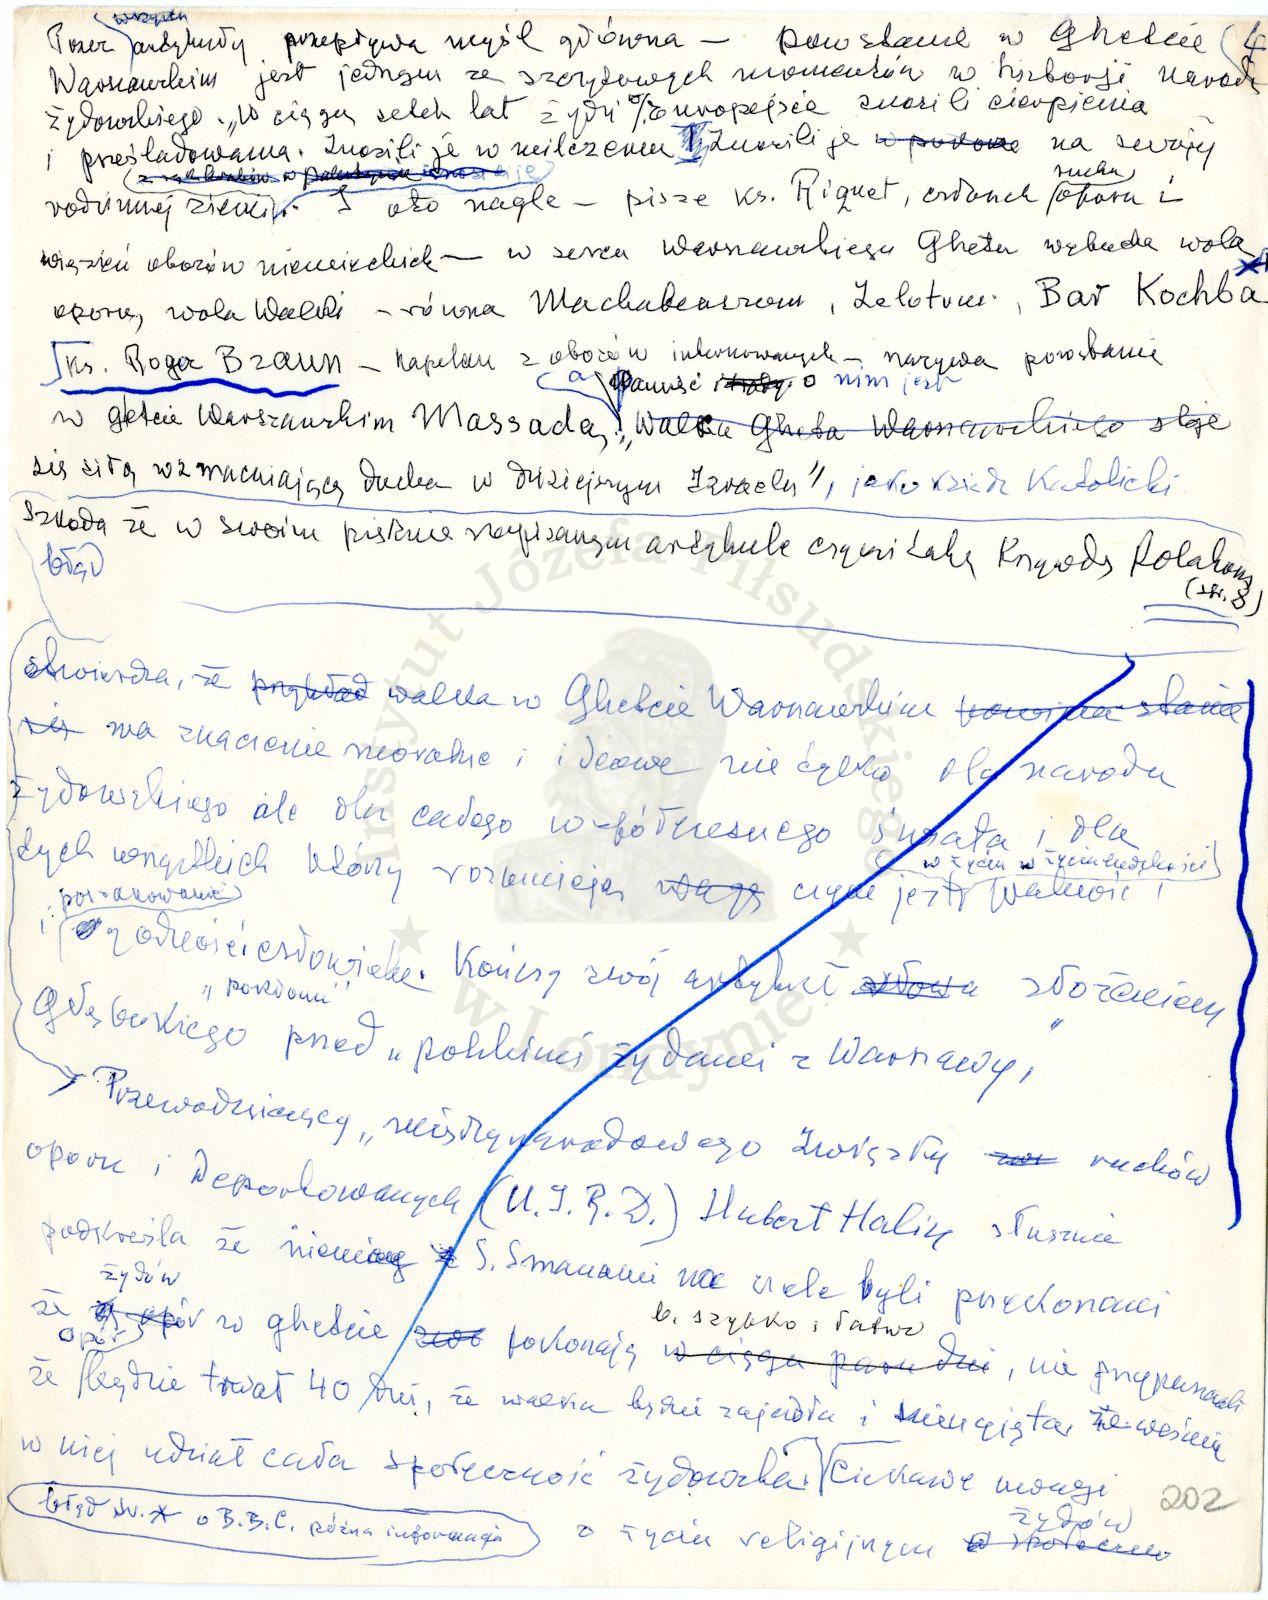 wszystkie
Przez artykuły przepływa myśl główna — powstanie w Ghetcie 4
Warszawskim jest jednym ze szczytowych momentów w historji narodu
żydowskiego. „W ciągu setek lat żydzi w Europejscie znosili cierpienia
i prześladowania. Znosili je w milczeniu Znosili je na swojej
ruchu
rodzinnej ziemi. I oto nagle — pisze ks. Riquet, członek oporu i
więzień obozów niemieckich — w sercu Warszawskiego Ghetta wybucha wola
oporu, wola walki — równa Machabeuszom, Zelotom, Bar Kochba
ks. Roger Braun — kapelan z obozów internowanych — nazywa powstanie
a pamięć o nim jest
w getcie Warszawskim Massadą, „Walka Ghetta Warszawskiego staje
się siłą wzmacniającą ducha w dzisiejszym Izraelu", jako ksiądz Katolicki
Szkoda że w swoim pięknie napisanym artykule czyni taką Krzywdę Polakom
błąd (str. 8)
stwierdza, że przykład walka w Ghetcie Warszawskim powinna stanie
się ma znaczenie moralne i ideowe nie tylko dla narodu
żydowskiego ale dla całego współczesnego świata i dla
w życiu w życiu ludzkości
tych wszystkich którzy rozumieją wagę czym jest wolność i
poszanowanie
i godności człowieka. Kończy swój artykuł złożeniem
„pokłonu"
Głębokiego przed „polskimi żydami z Warszawy"
Przewodniczący „międzynarodowego Związku ruchów
oporu i Deportowanych (U.I.R.D.) Hubert Halin słusznie
podkreśla że niemcy z S.Smanami na czele byli przekonani
żydów b. szybko i łatwo
że opór w ghetcie pokonają w ciągu paru dni, nie przypuszczali
opór
że będzie trwał 40 dni, że walka będzie zajadła i że weźmie
w niej udział cała społeczność żydowska. Ciekawe uwagi
202
błąd str. * o B.B.C. różna informacja
żydów
o życiu religijnym społeczno
Instytut Józefa Piłsudskiego w Londynie